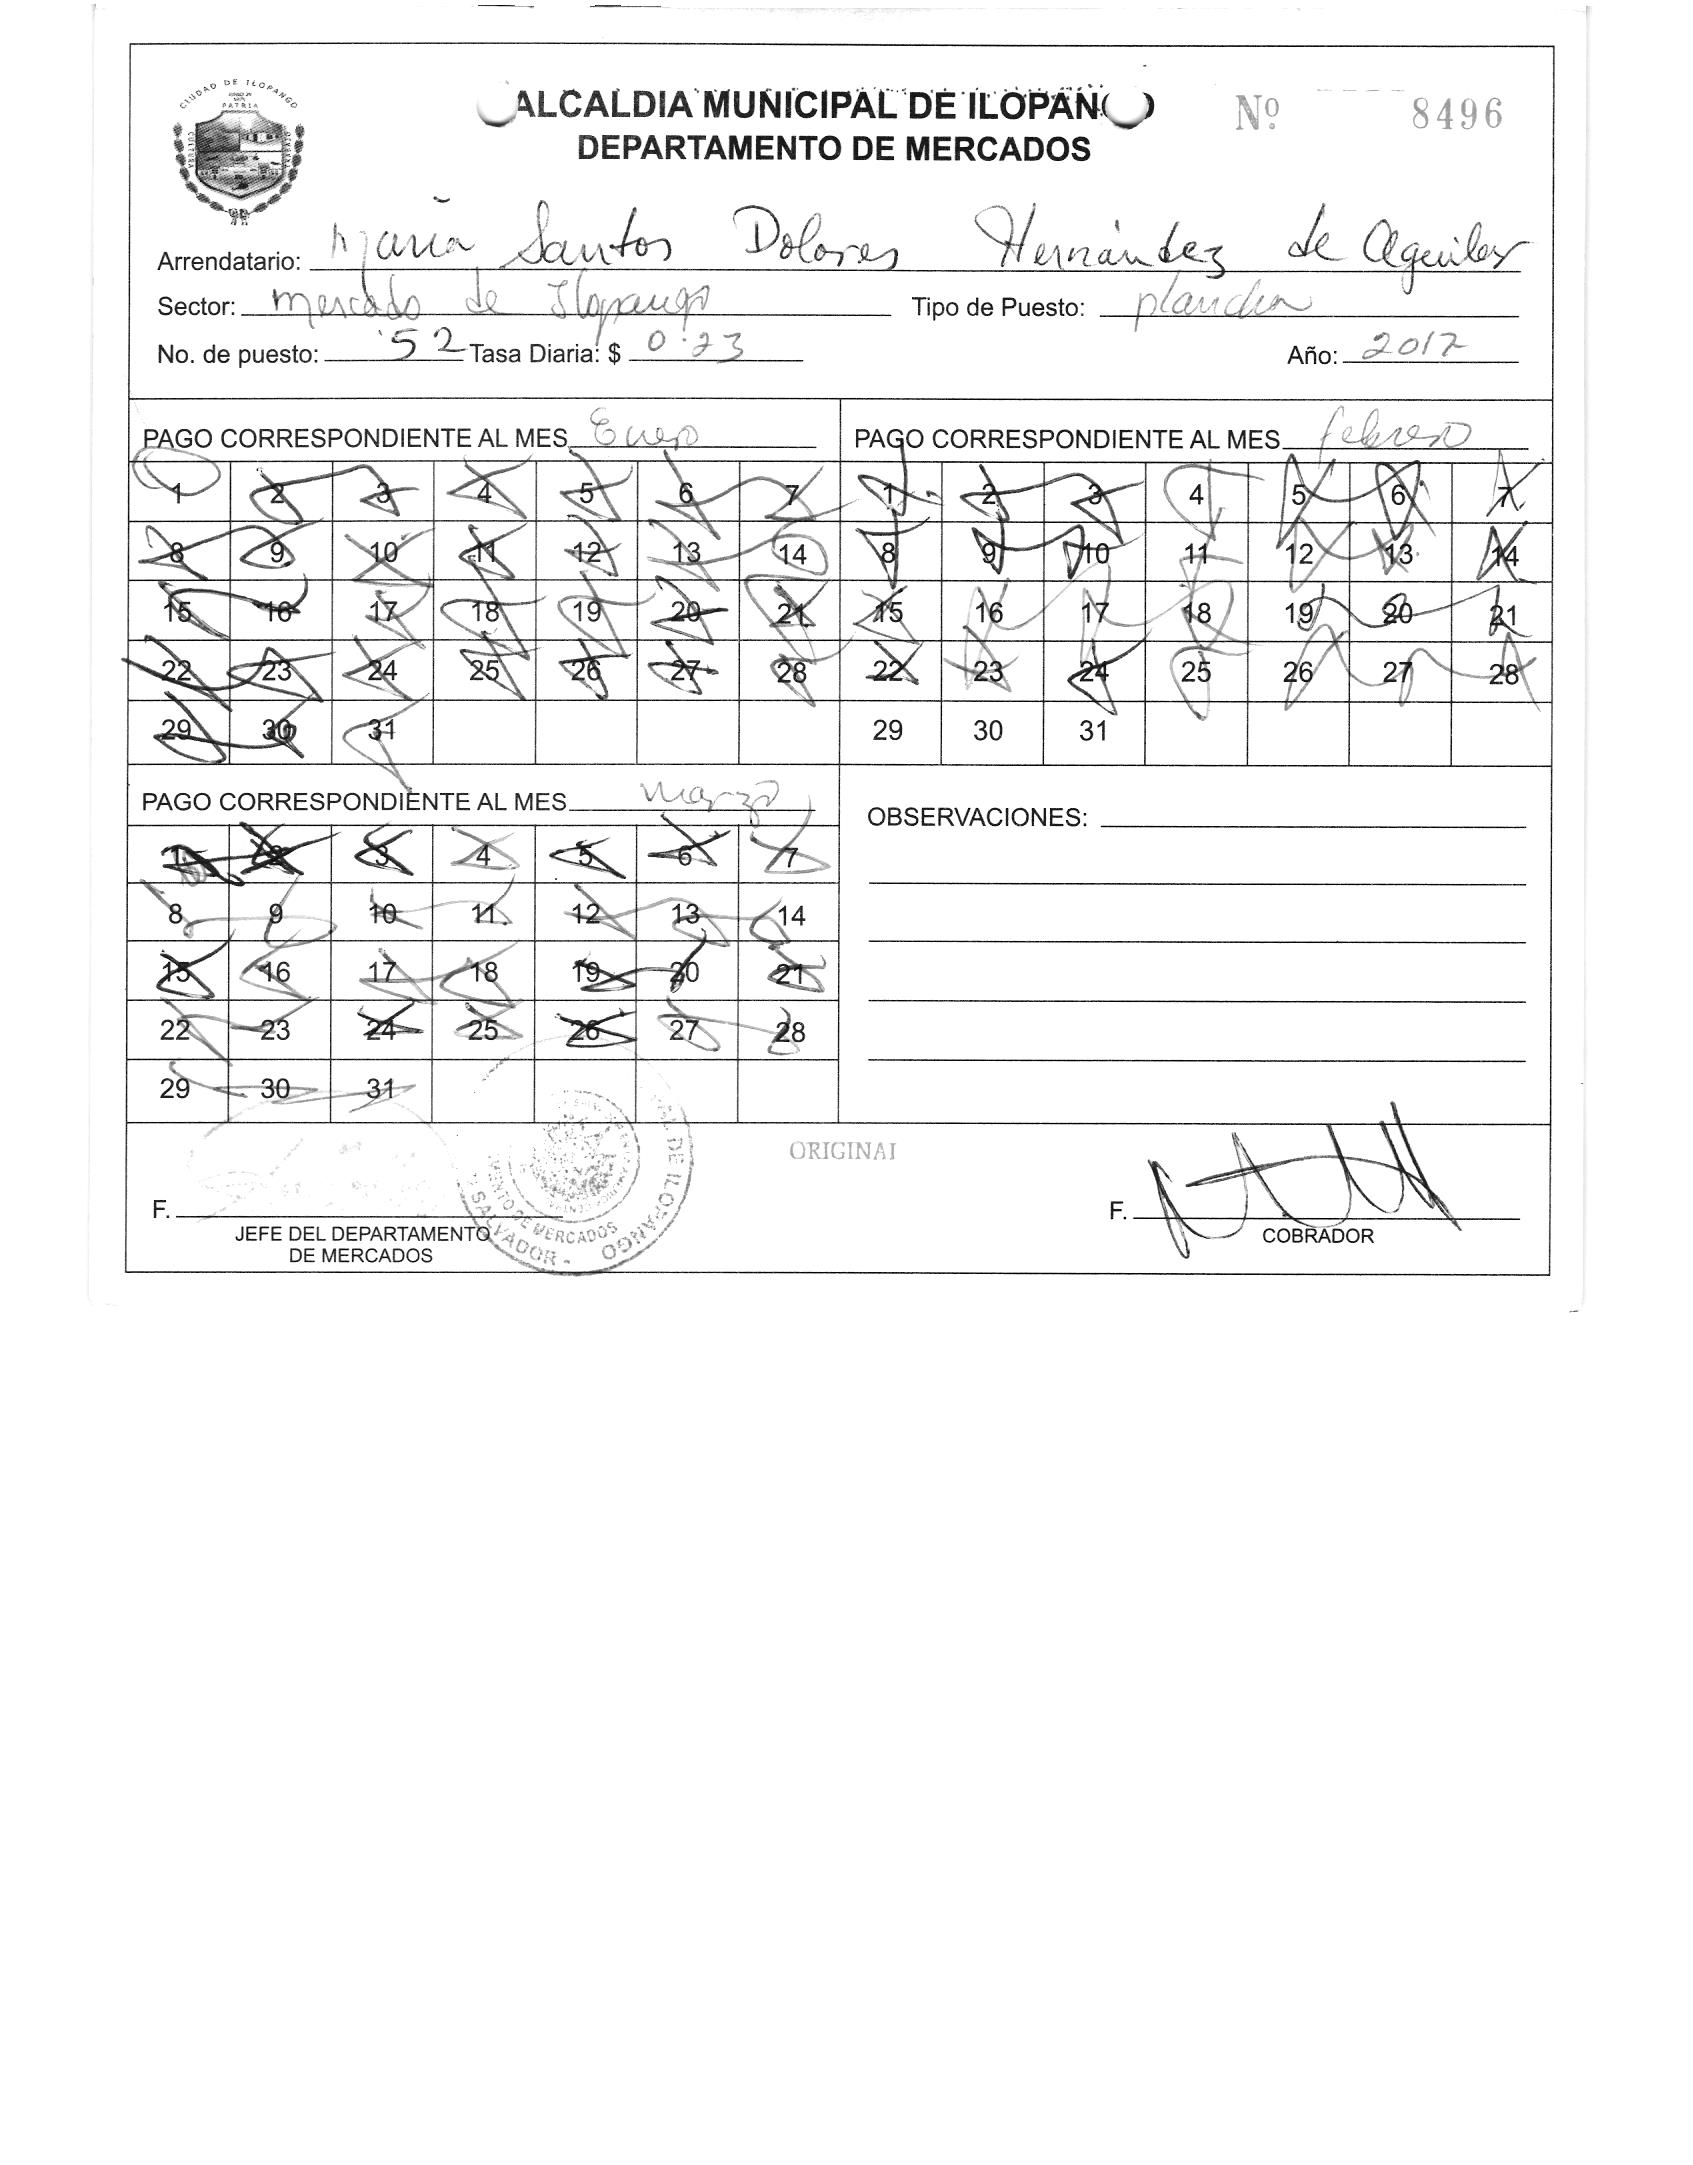 CIUDAD DE ILOPANGO
PATRIA
CULTURA
ALCALDIA MUNICIPAL DE ILOPAN O
Nº 8496
DEPARTAMENTO DE MERCADOS
Arrendatario: María Santos Dolores Hernández de Aguilar
Sector: mercado de Ilopango Tipo de Puesto: plancha
No. de puesto: 52 Tasa Diaria: $ 0.23 Año: 2017
PAGO CORRESPONDIENTE AL MES Enero
1 2 3 4 5 6 7
8 9 10 11 12 13 14
15 16 17 18 19 20 21
22 23 24 25 26 27 28
29 30 31
PAGO CORRESPONDIENTE AL MES febrero
1 2 3 4 5 6 7
8 9 10 11 12 13 14
15 16 17 18 19 20 21
22 23 24 25 26 27 28
29 30 31
PAGO CORRESPONDIENTE AL MES marzo
1 2 3 4 5 6 7
8 9 10 11 12 13 14
15 16 17 18 19 20 21
22 23 24 25 26 27 28
29 30 31
OBSERVACIONES:
ORIGINAL
F.
JEFE DEL DEPARTAMENTO
DE MERCADOS
DE ILOPANGO
DE MERCADOS
SALVADOR
F.
COBRADOR